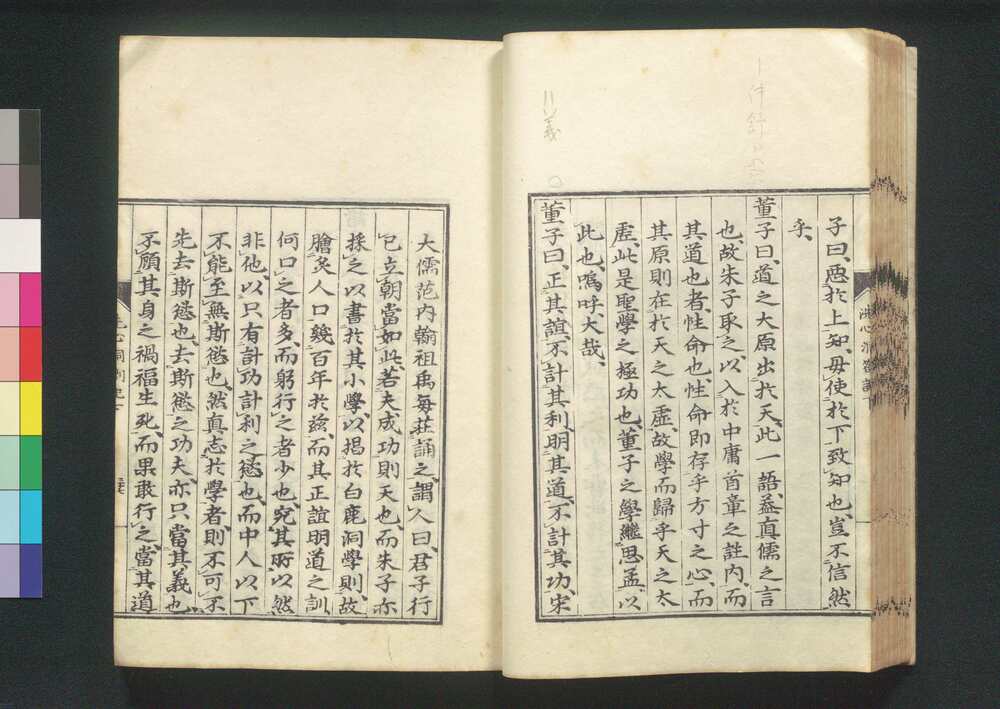 子曰、愚於上知、毋使於下致知也、豈不信然
乎、
董子曰、道之大原出於天、此一語、益真儒之言
也、故朱子取之、以入於中庸首章之註內、而
其道也者、性命也、性命即存乎方寸之心、而
其原則在於天之太虛、故學而歸乎天之太
虛、此是聖學之極功也、董子之學繼思孟、以
此也、嗚呼、大哉、
董子曰、正其誼、不計其利、明其道、不計其功、宋
大儒范內翰祖禹每莊誦之、謂人曰、君子行
己立朝當如此、若夫成功則天也、而朱子亦
採之以書於其小學、以揭於白鹿洞學則、故
膾炙人口幾百年於茲、而其正誼明道之訓
何口之者多、而躬行之者少也、究其所以然
非他、以只有計功計利之慾也、而中人以下
不能至無斯慾也、然真志於學者、則不可不
先去斯慾也、去斯慾之功夫、亦只當其義也、
不顧其身之禍福生死、而果敢行之、當其道